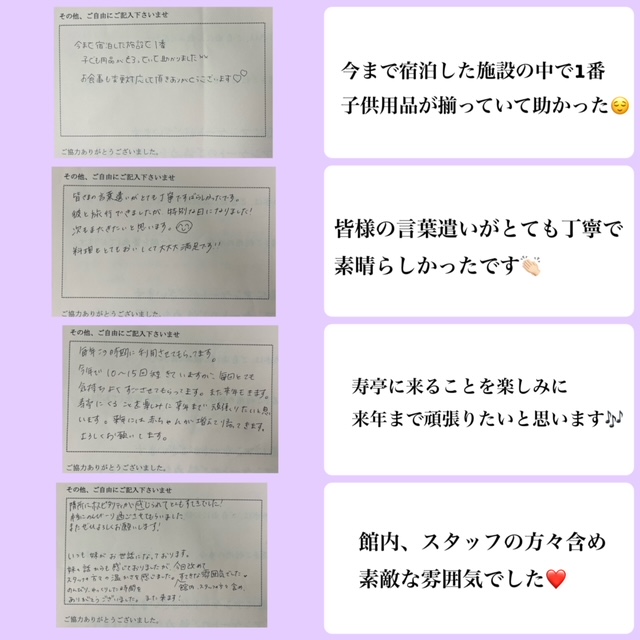 その他、ご自由にご記入下さいませ
今まで宿泊した施設で1番
子ども用品がそろっていて助かりました
お食事も変更対応して頂きありがとうございます♡♡
ご協力ありがとうございました。
今まで宿泊した施設の中で1番
子供用品が揃っていて助かった😌
その他、ご自由にご記入下さいませ
皆様の言葉遣いがとても丁寧ですばらしかったです。
彼と旅行できましたが、特別な日になりました!
次もまたきたいと思います。
料理もとてもおいしくて大大大満足です!!
ご協力ありがとうございました。
皆様の言葉遣いがとても丁寧で
素晴らしかったです👏🏻
その他、ご自由にご記入下さいませ
毎年この時期に利用させてもらってます。
今年で10〜15回ほどきていますが、毎回とても
気持ちよくすごさせてもらってます。また来年もきます。
寿亭にくることを楽しみに来年まで頑張りたいと思
います。来年には赤ちゃんが増えて
よろしくお願いします。
ご協力ありがとうございました。
寿亭に来ることを楽しみに
来年まで頑張りたいと思います🎶
その他、ご自由にご記入下さいませ
随所にホスピタリティが感じられてとてもすてきでした!
またぜひよろしくお願いします!
いつも妹がお世話になっております。
妹の話からも感じておりましたが今回改めて
スタッフの方々の温かさを感じました。すてきな雰囲気でした。
館内、スタッフの方々含め
のんびり、ゆっくりした時間を
ありがとうございました。また来ます!
館内、スタッフの方々含め
素敵な雰囲気でした❤️